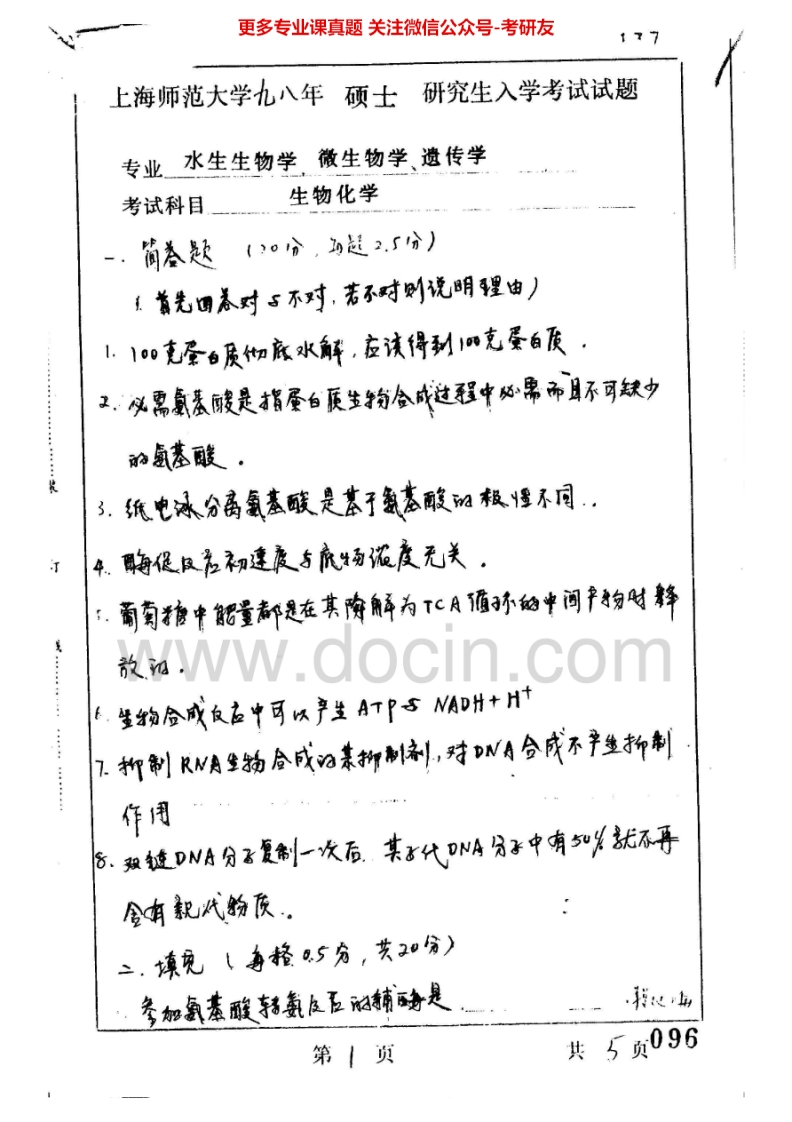 更多专业课真题 关注微信公众号-考研友
137
上海师范大学九八年 硕士 研究生入学考试试题
专业 水生生物学、微生物学、遗传学
考试科目 生物化学
一. 简答题 (20分, 每题2.5分)
(首先回答对与不对, 若不对则说明理由)
1. 100克蛋白质彻底水解, 应该得到100克蛋白质.
2. 必需氨基酸是指蛋白质生物合成过程中必需而且不可缺少
的氨基酸.
3. 纸电泳分离氨基酸是基于氨基酸的极性不同..
4. 酶促反应初速度与底物浓度无关.
5. 葡萄糖中能量都是在其降解为TCA循环的中间产物时释
放的.
6. 生物合成反应中可以产生ATP与 NADH+H⁺
7. 抑制RNA生物合成的某抑制剂, 对DNA合成不产生抑制
作用
8. 双链DNA分子复制一次后, 其子代DNA分子中有50%就不再
含有亲代物质.
二. 填充 (每格0.5分, 共20分)
参加氨基酸转氨反应的辅酶是
www.docin.com
装
订
线
第 1 页
共 5 页
096